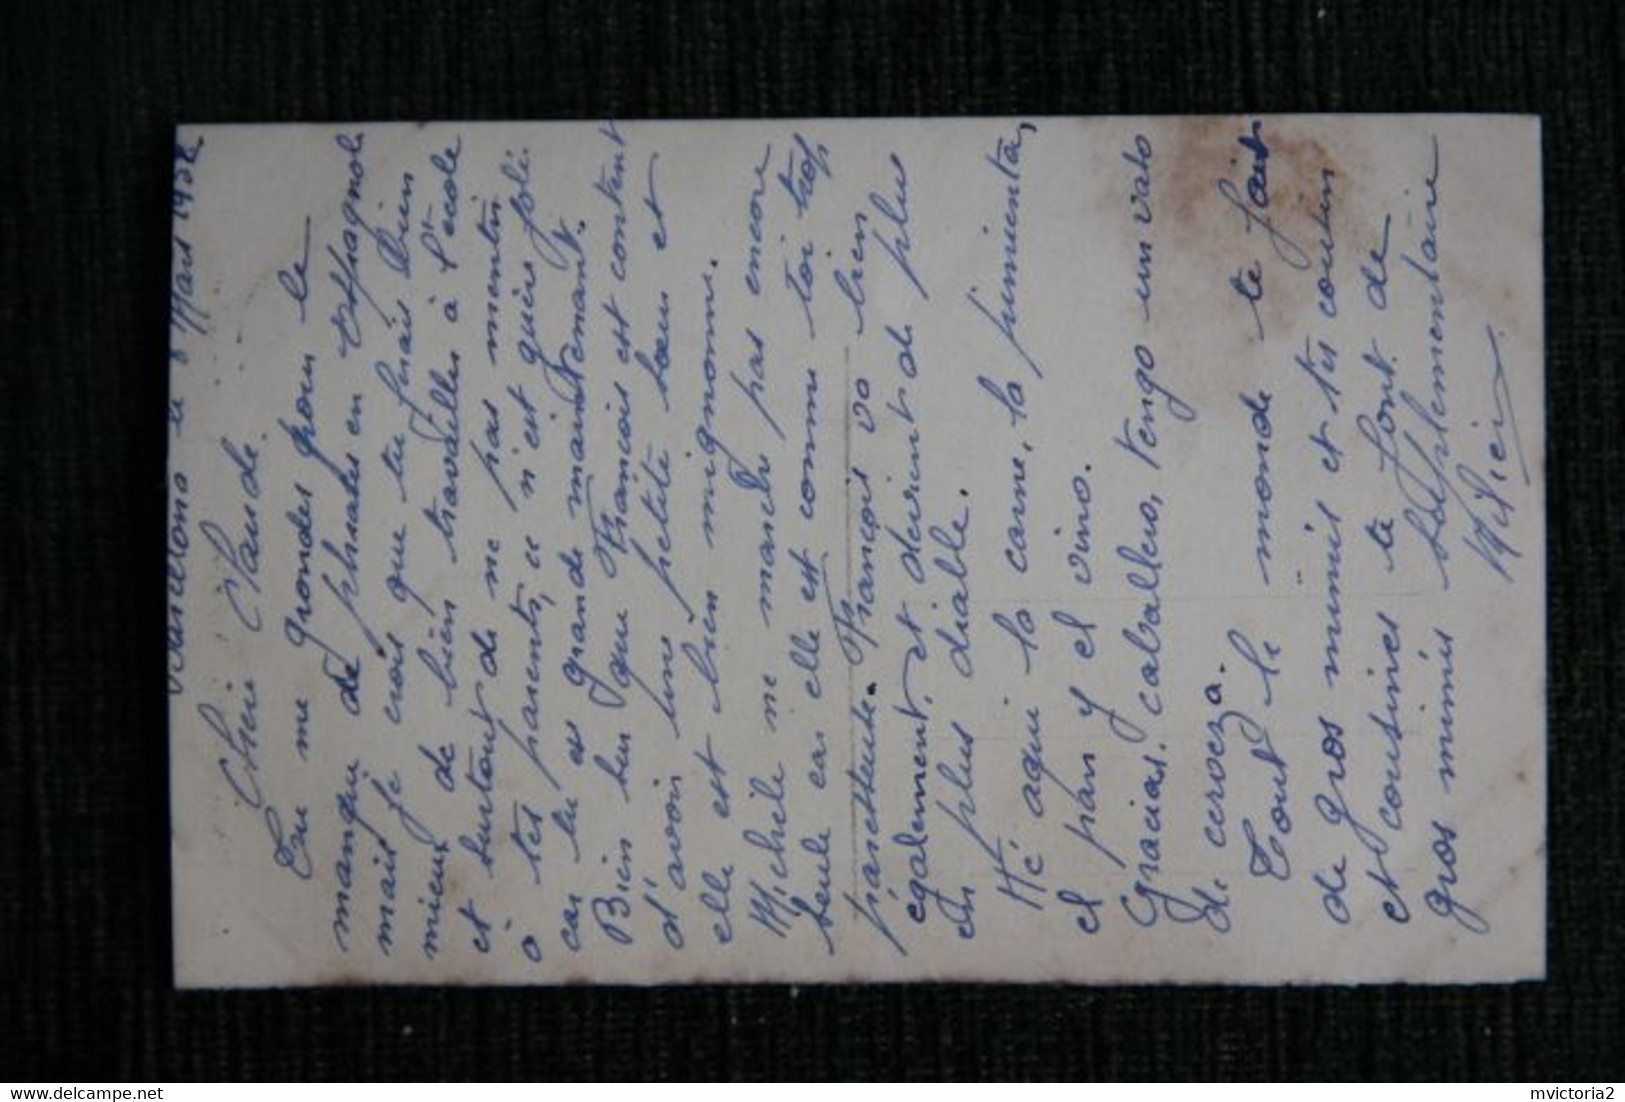 Barcelona le 8 Mars 1952
Cher Claude.
Tu me grondes pour le
manque de phrases en Espagnole
mais je crois que tu ferais bien
mieux de bien travailler à l'école
et surtout de ne pas mentir
à tes parents, ce n'est guère joli.
car tu es grand maintenant.
Bien sur que François est content
d'avoir une petite sœur et
elle est bien mignonne.
Michèle ne marche pas encore
seule car elle est comme toi trop
François va bien
également, et devient de plus
en plus diable.
Hé aqui la carne, la pimienta,
el pan y el vino.
Gracias, caballero, tengo un vaso
de cerveza.
Tout le monde te fait
de gros mimis et tes cousin
et cousines te font de
gros mimis supplémentaire
delcampe.net
mvictoria2